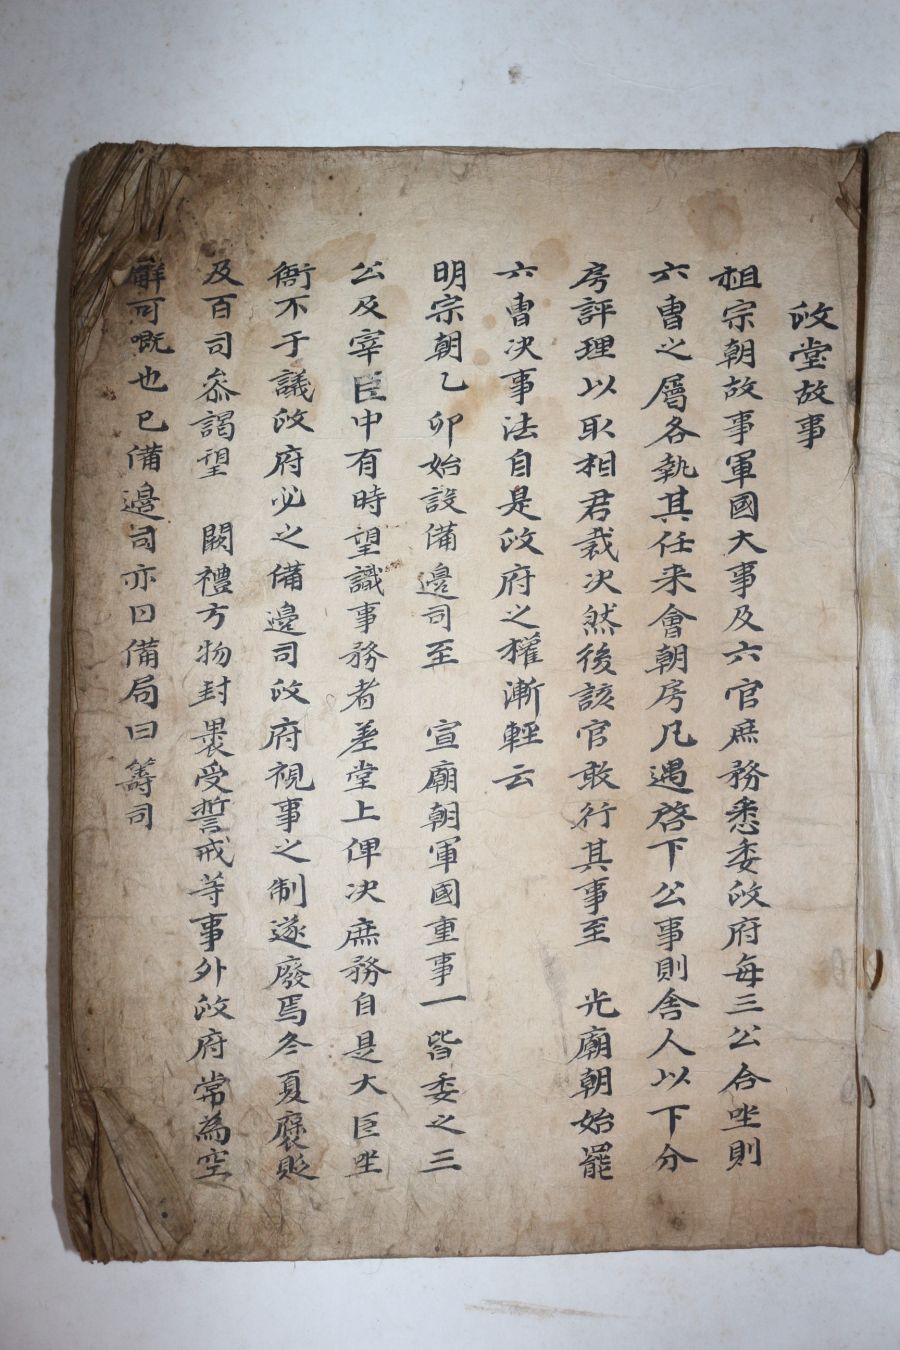 政堂故事
祖宗朝故事軍國大事及六官庶務悉委政府每三公合坐則
六曹之屬各執其任来會朝房凡遇啓下公事則舍人以下分
房評理以取相君裁决然後該官敢行其事至　光廟朝始罷
六曹决事法自是政府之權漸輕云
明宗朝乙卯始設備邊司至　宣廟朝軍國重事一皆委之三
公及宰臣中有時望識事務者差堂上俾决庶務自是大臣坐
衙不于議政府必之備邊司政府視事之制遂廢焉冬夏褒貶
及百司叅謁望　闕禮方物封褁受誓戒等事外政府常為空
廨可嘅也已備邊司亦曰備局曰籌司